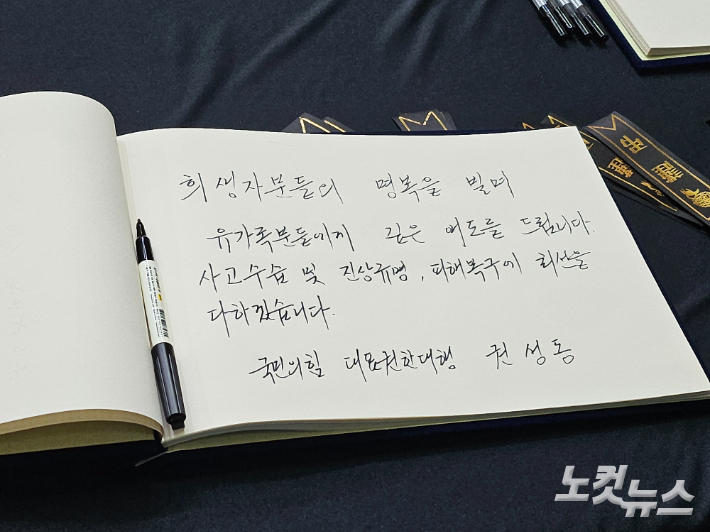 희생자분들의 명복을 빌며
유가족분들에게 깊은 애도를 드립니다.
사고수습 및 진상규명, 피해복구에 최선을
다하겠습니다.
국민의힘 대표권한대행 권성동
노컷뉴스